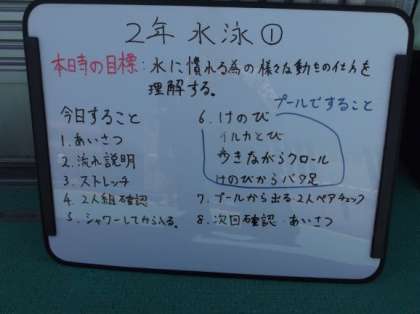 2年 水泳①
本日時の目標:水に慣れる為の様々な動きの仕方を
理解する。
今日すること
1.あいさつ
2.流れ説明
3.ストレッチ
4.2人組確認
5.シャワーしてから入る。
プールですること
6.けのび
イルカとび
歩きながらクロール
けのびからバタ足
7.プールから出る 2人ペアチェック
8.次回確認 あいさつ